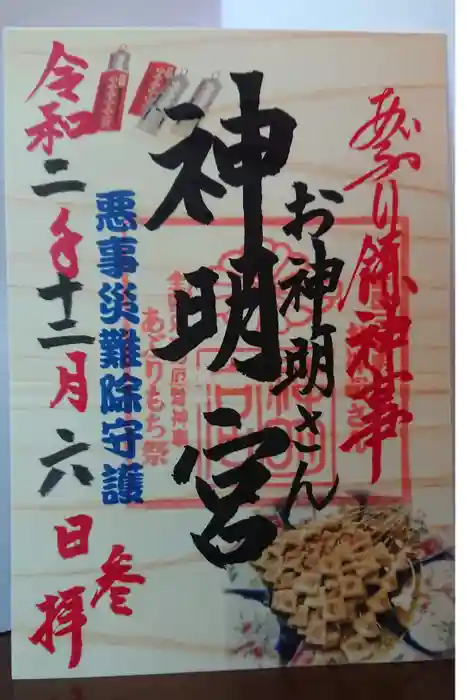 あぶり餅神事
お神明さん
神明宮
悪事災難除守護
あぶりもち祭
令和二年十二月六日
参拝